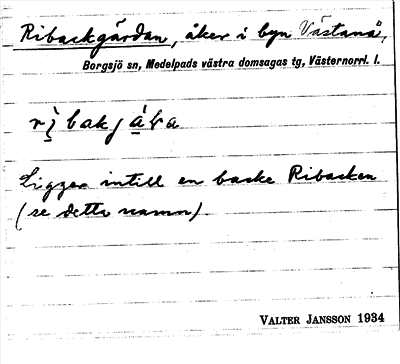 Ribackgärdan, åker i byn Västanå,
Borgsjö sn, Medelpads västra domsagas tg, Västernorrl. l.
Ligger intill en backe Ribacken
(se detta namn).
VALTER JANSSON 1934